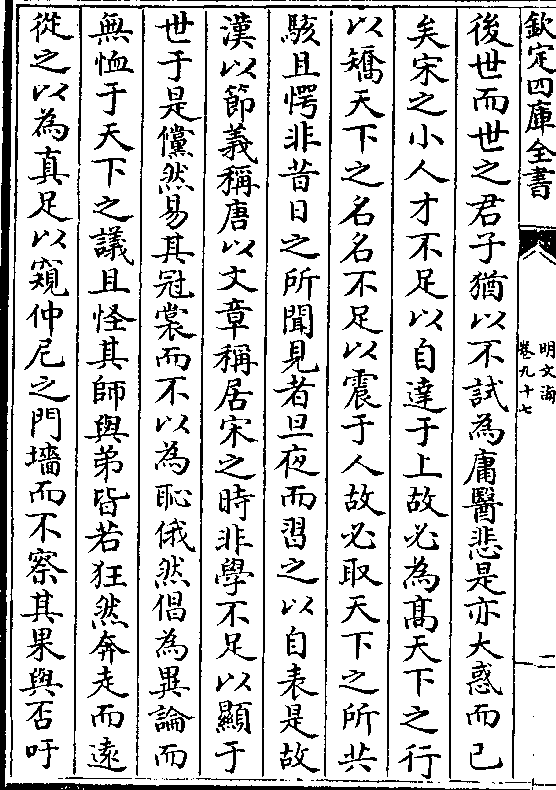 欽定四庫全書
明文海
卷九十七
二
後世而世之君子猶以不試為庸醫悲是亦大惑而已
矣宋之小人才不足以自達于上故必為髙天下之行
以矯天下之名名不足以震于人故必取天下之所共
駭且愕非昔日之所聞見者旦夜而習之以自表是故
漢以節義稱唐以文章稱居宋之時非學不足以顯于
世于是儻然易其冠裳而不以為恥俄然倡為異論而
無恤于天下之議且怪其師與弟皆若狂然奔走而逺
從之以為真足以窺仲尼之門墻而不察其果與否吁